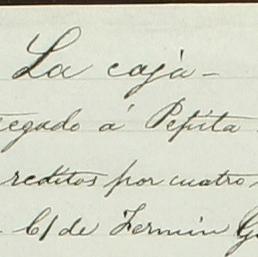 La caja -
egado á Pepita
reditos por cuatro
C/ de Fermin G